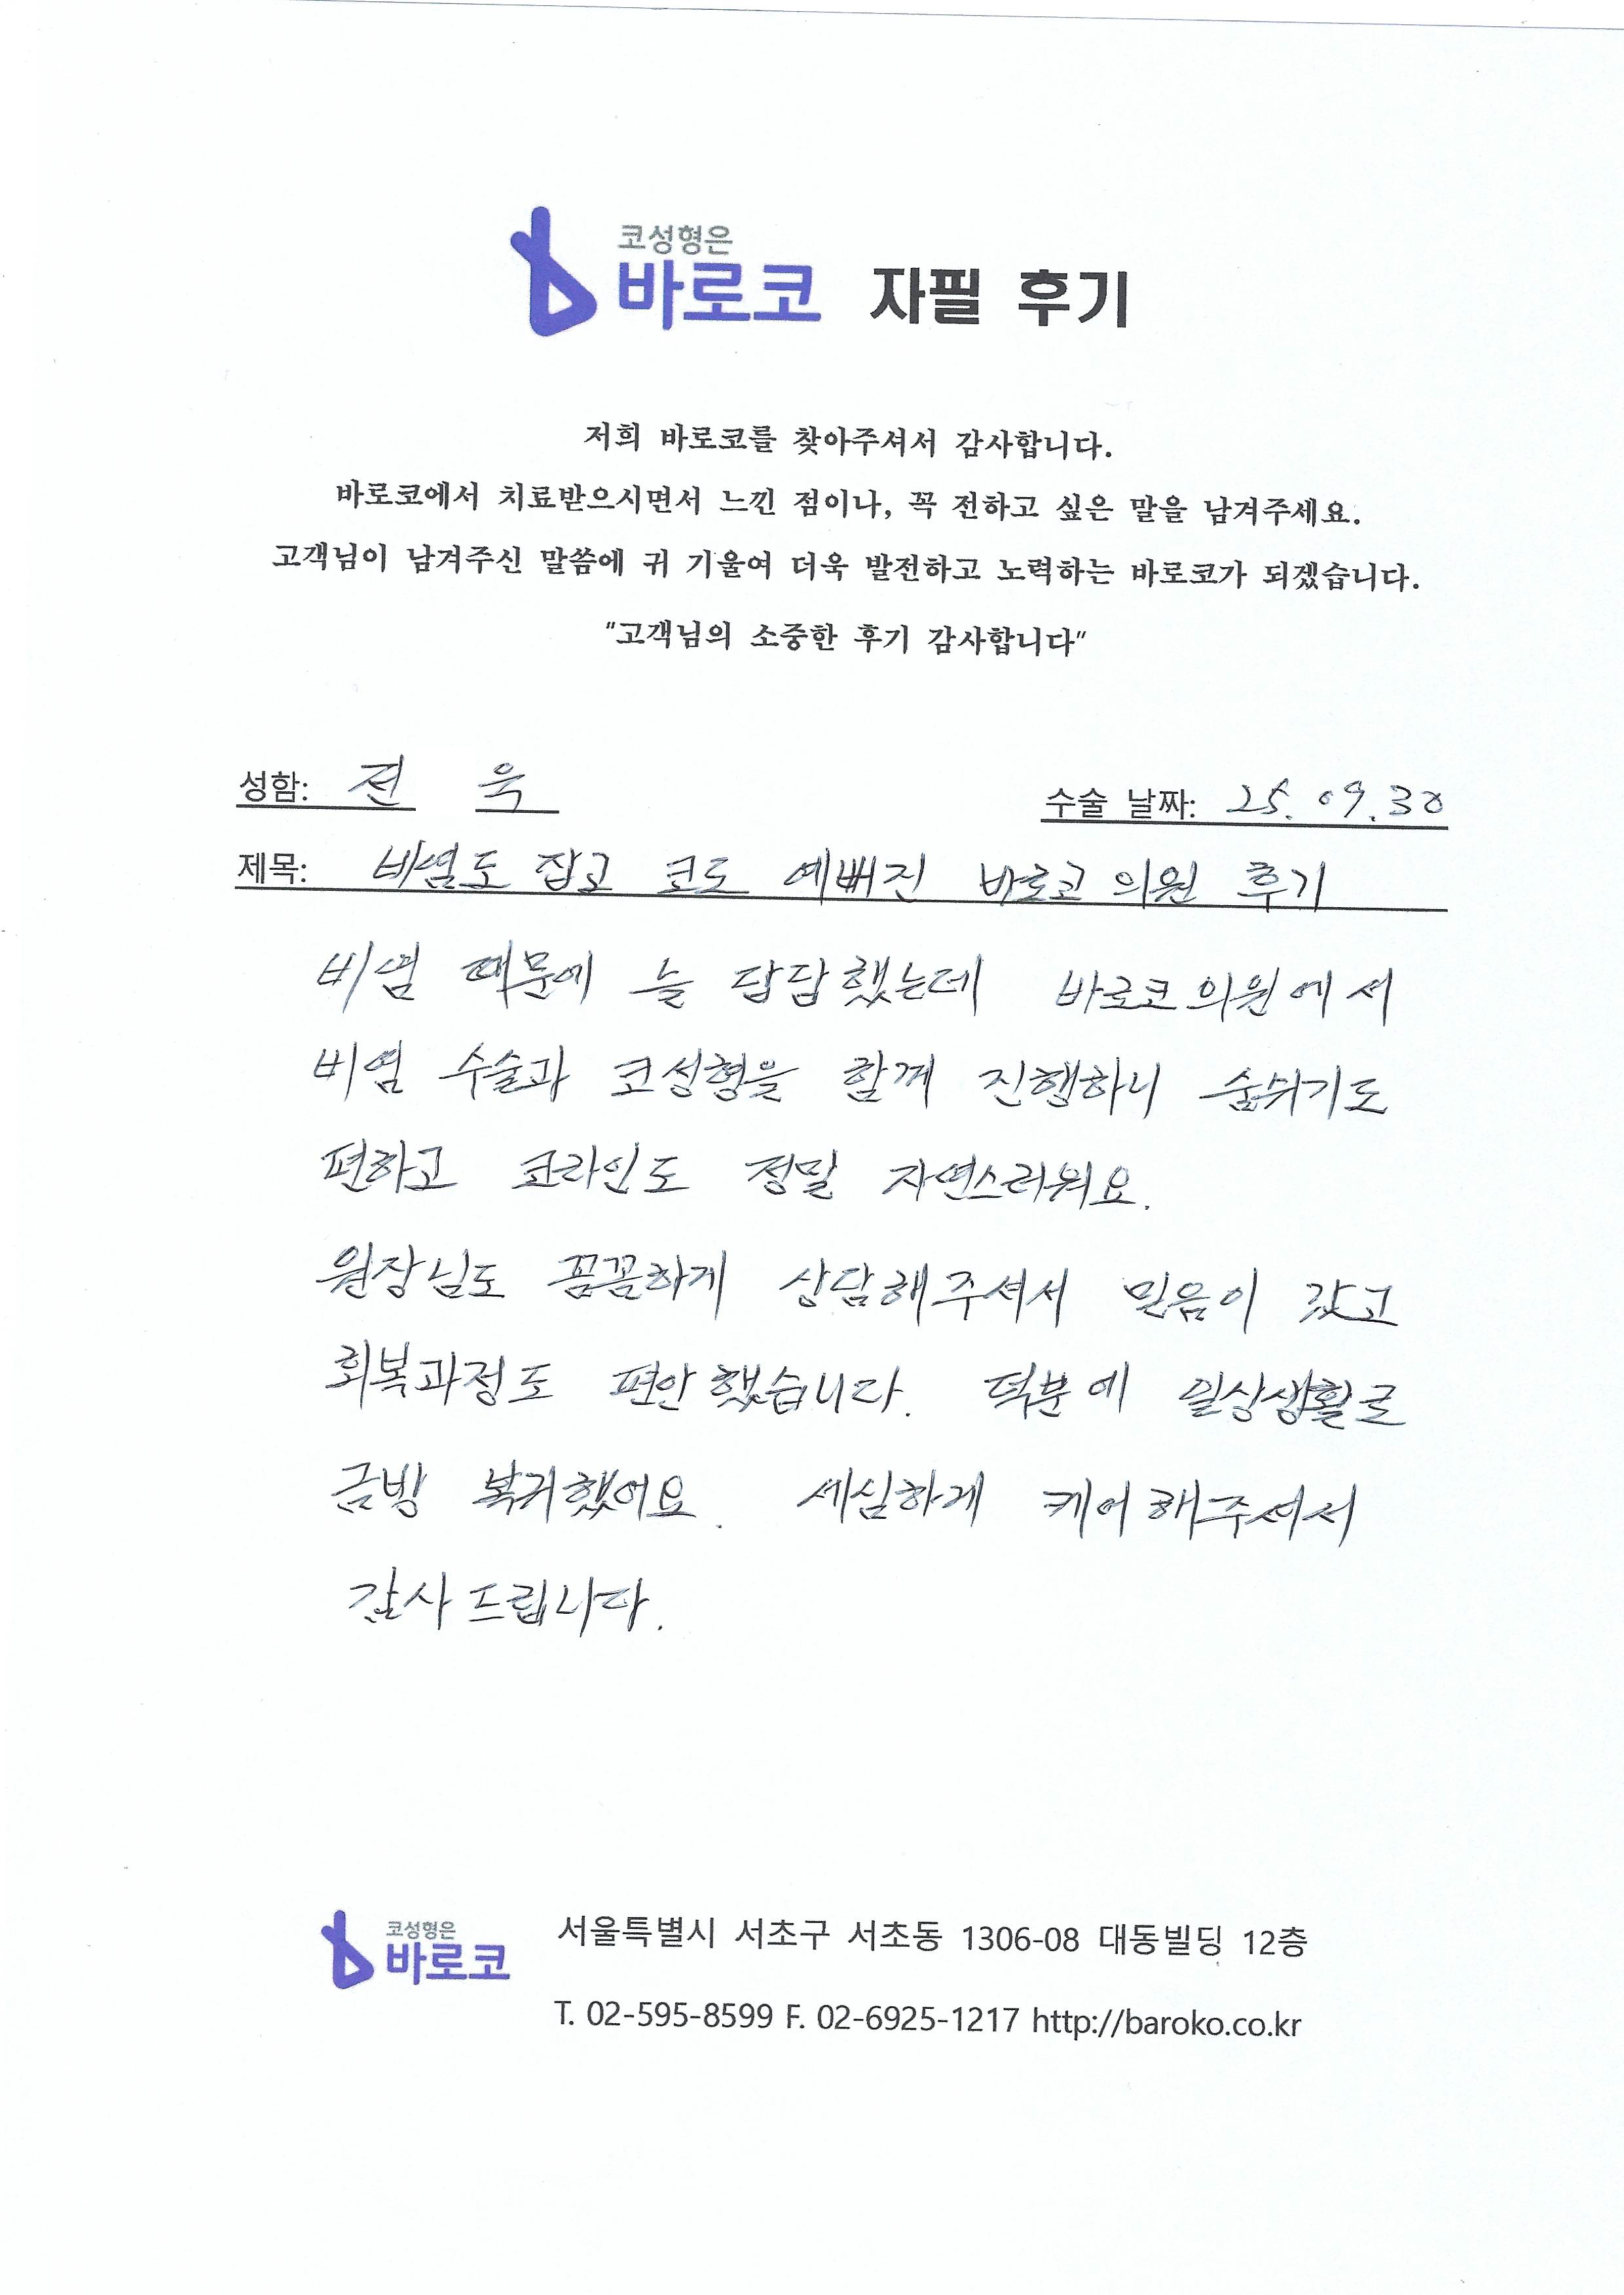 코성형은
바로코 자필 후기
저희 바로코를 찾아주셔서 감사합니다.
바로코에서 치료받으시면서 느낀 점이나, 꼭 전하고 싶은 말을 남겨주세요.
고객님이 남겨주신 말씀에 귀 기울여 더욱 발전하고 노력하는 바로코가 되겠습니다.
"고객님의 소중한 후기 감사합니다"
성함: 전 욱 수술 날짜: 25.09.30
제목: 비염도 잡고 코도 예뻐진 바로코의원 후기
비염 때문에 늘 답답했는데 바로코의원에서
비염 수술과 코성형을 함께 진행하니 숨쉬기도
편하고 코라인도 정말 자연스러워요.
원장님도 꼼꼼하게 상담해주셔서 믿음이 갔고
회복과정도 편안했습니다. 덕분에 일상생활로
금방 복귀했어요. 세심하게 케어해주셔서
감사드립니다.
코성형은
바로코
서울특별시 서초구 서초동 1306-08 대동빌딩 12층
T. 02-595-8599 F. 02-6925-1217 http://baroko.co.kr